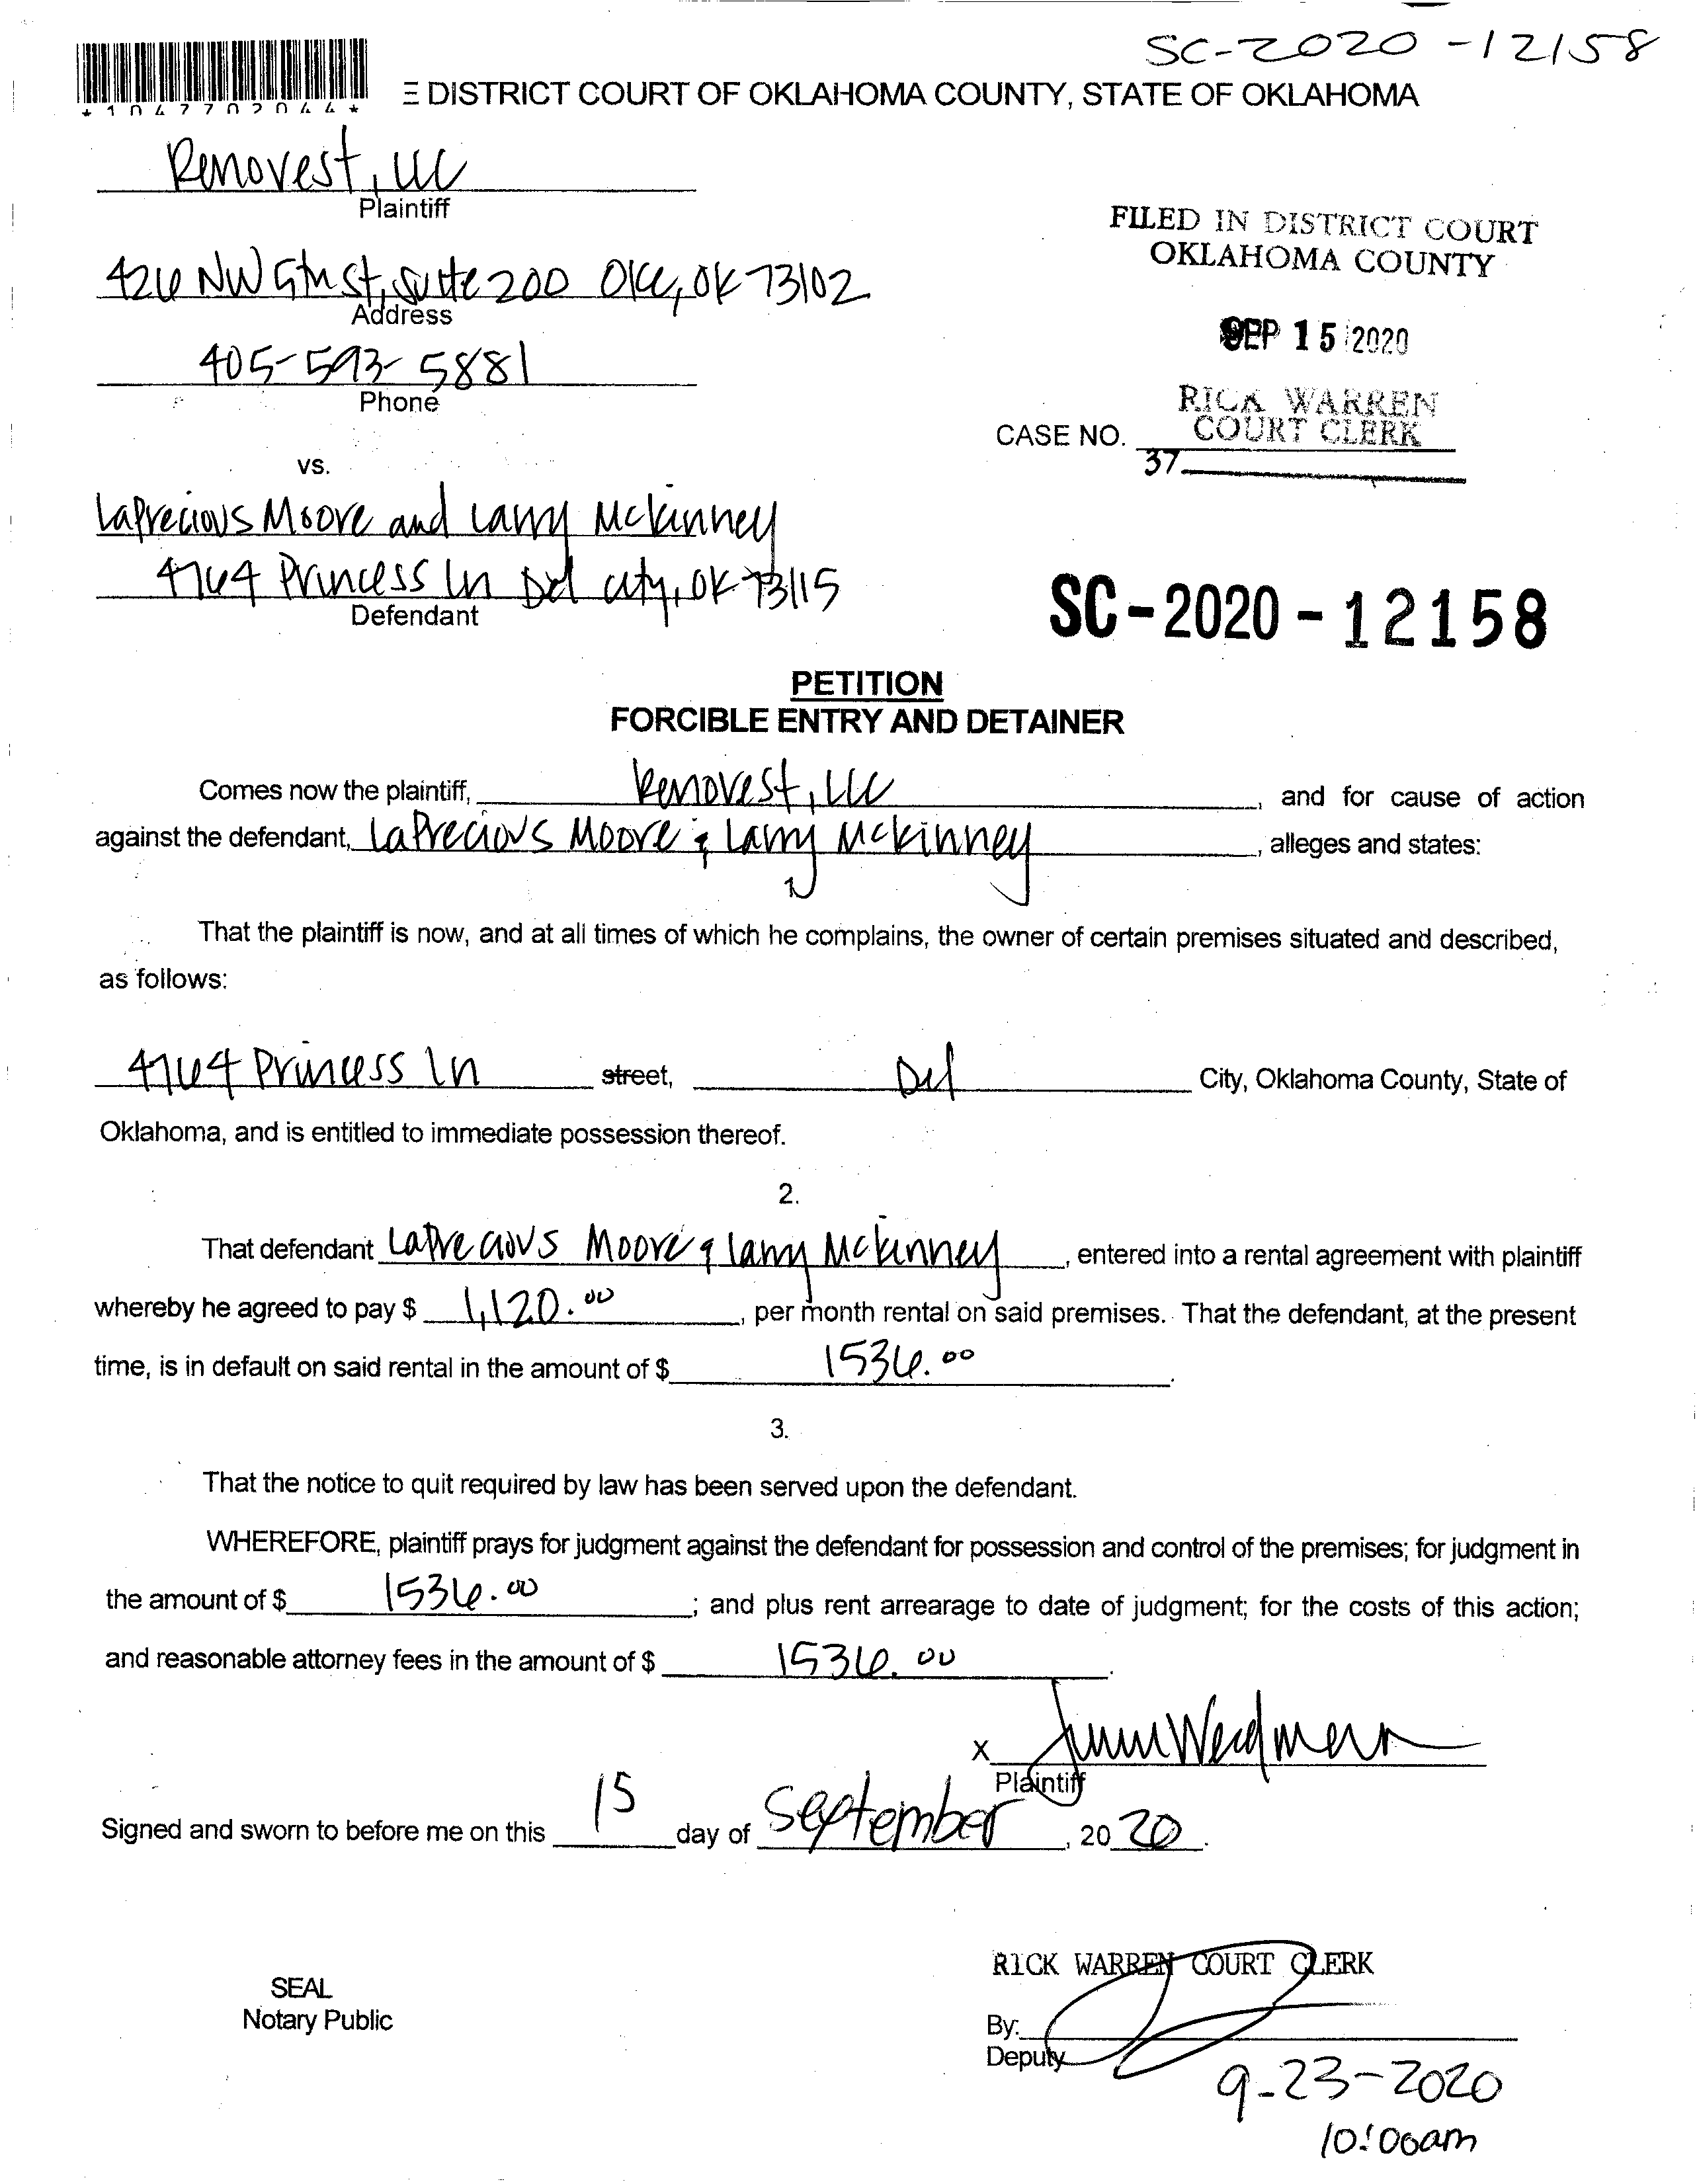 SC-2020-12158
*1047702044*
E DISTRICT COURT OF OKLAHOMA COUNTY, STATE OF OKLAHOMA
Renovest, LLC
Plaintiff
426 NW 5th St, Suite 200 OKC, OK 73102
Address
405-593-5881
Phone
FILED IN DISTRICT COURT
OKLAHOMA COUNTY
SEP 15 2020
RICK WARREN
COURT CLERK
CASE NO.
37
vs.
LaPrecious Moore and Larry McKinney
4764 Princess Ln Del City, OK 73115
Defendant
SC-2020-12158
PETITION
FORCIBLE ENTRY AND DETAINER
Comes now the plaintiff, Renovest, LLC, and for cause of action
against the defendant, LaPrecious Moore & Larry McKinney, alleges and states:
1
That the plaintiff is now, and at all times of which he complains, the owner of certain premises situated and described,
as follows:
4764 Princess Ln street, Del City, Oklahoma County, State of
Oklahoma, and is entitled to immediate possession thereof.
2.
That defendant LaPrecious Moore & Larry McKinney, entered into a rental agreement with plaintiff
whereby he agreed to pay $ 1,120.00, per month rental on said premises. That the defendant, at the present
time, is in default on said rental in the amount of $ 1536.00.
3.
That the notice to quit required by law has been served upon the defendant.
WHEREFORE, plaintiff prays for judgment against the defendant for possession and control of the premises; for judgment in
the amount of $ 1536.00; and plus rent arrearage to date of judgment; for the costs of this action;
and reasonable attorney fees in the amount of $ 1536.00.
X
Plaintiff
Signed and sworn to before me on this 15 day of September, 2020.
SEAL
Notary Public
RICK WARREN COURT CLERK
By:
Deputy
9-23-2020
10:00am